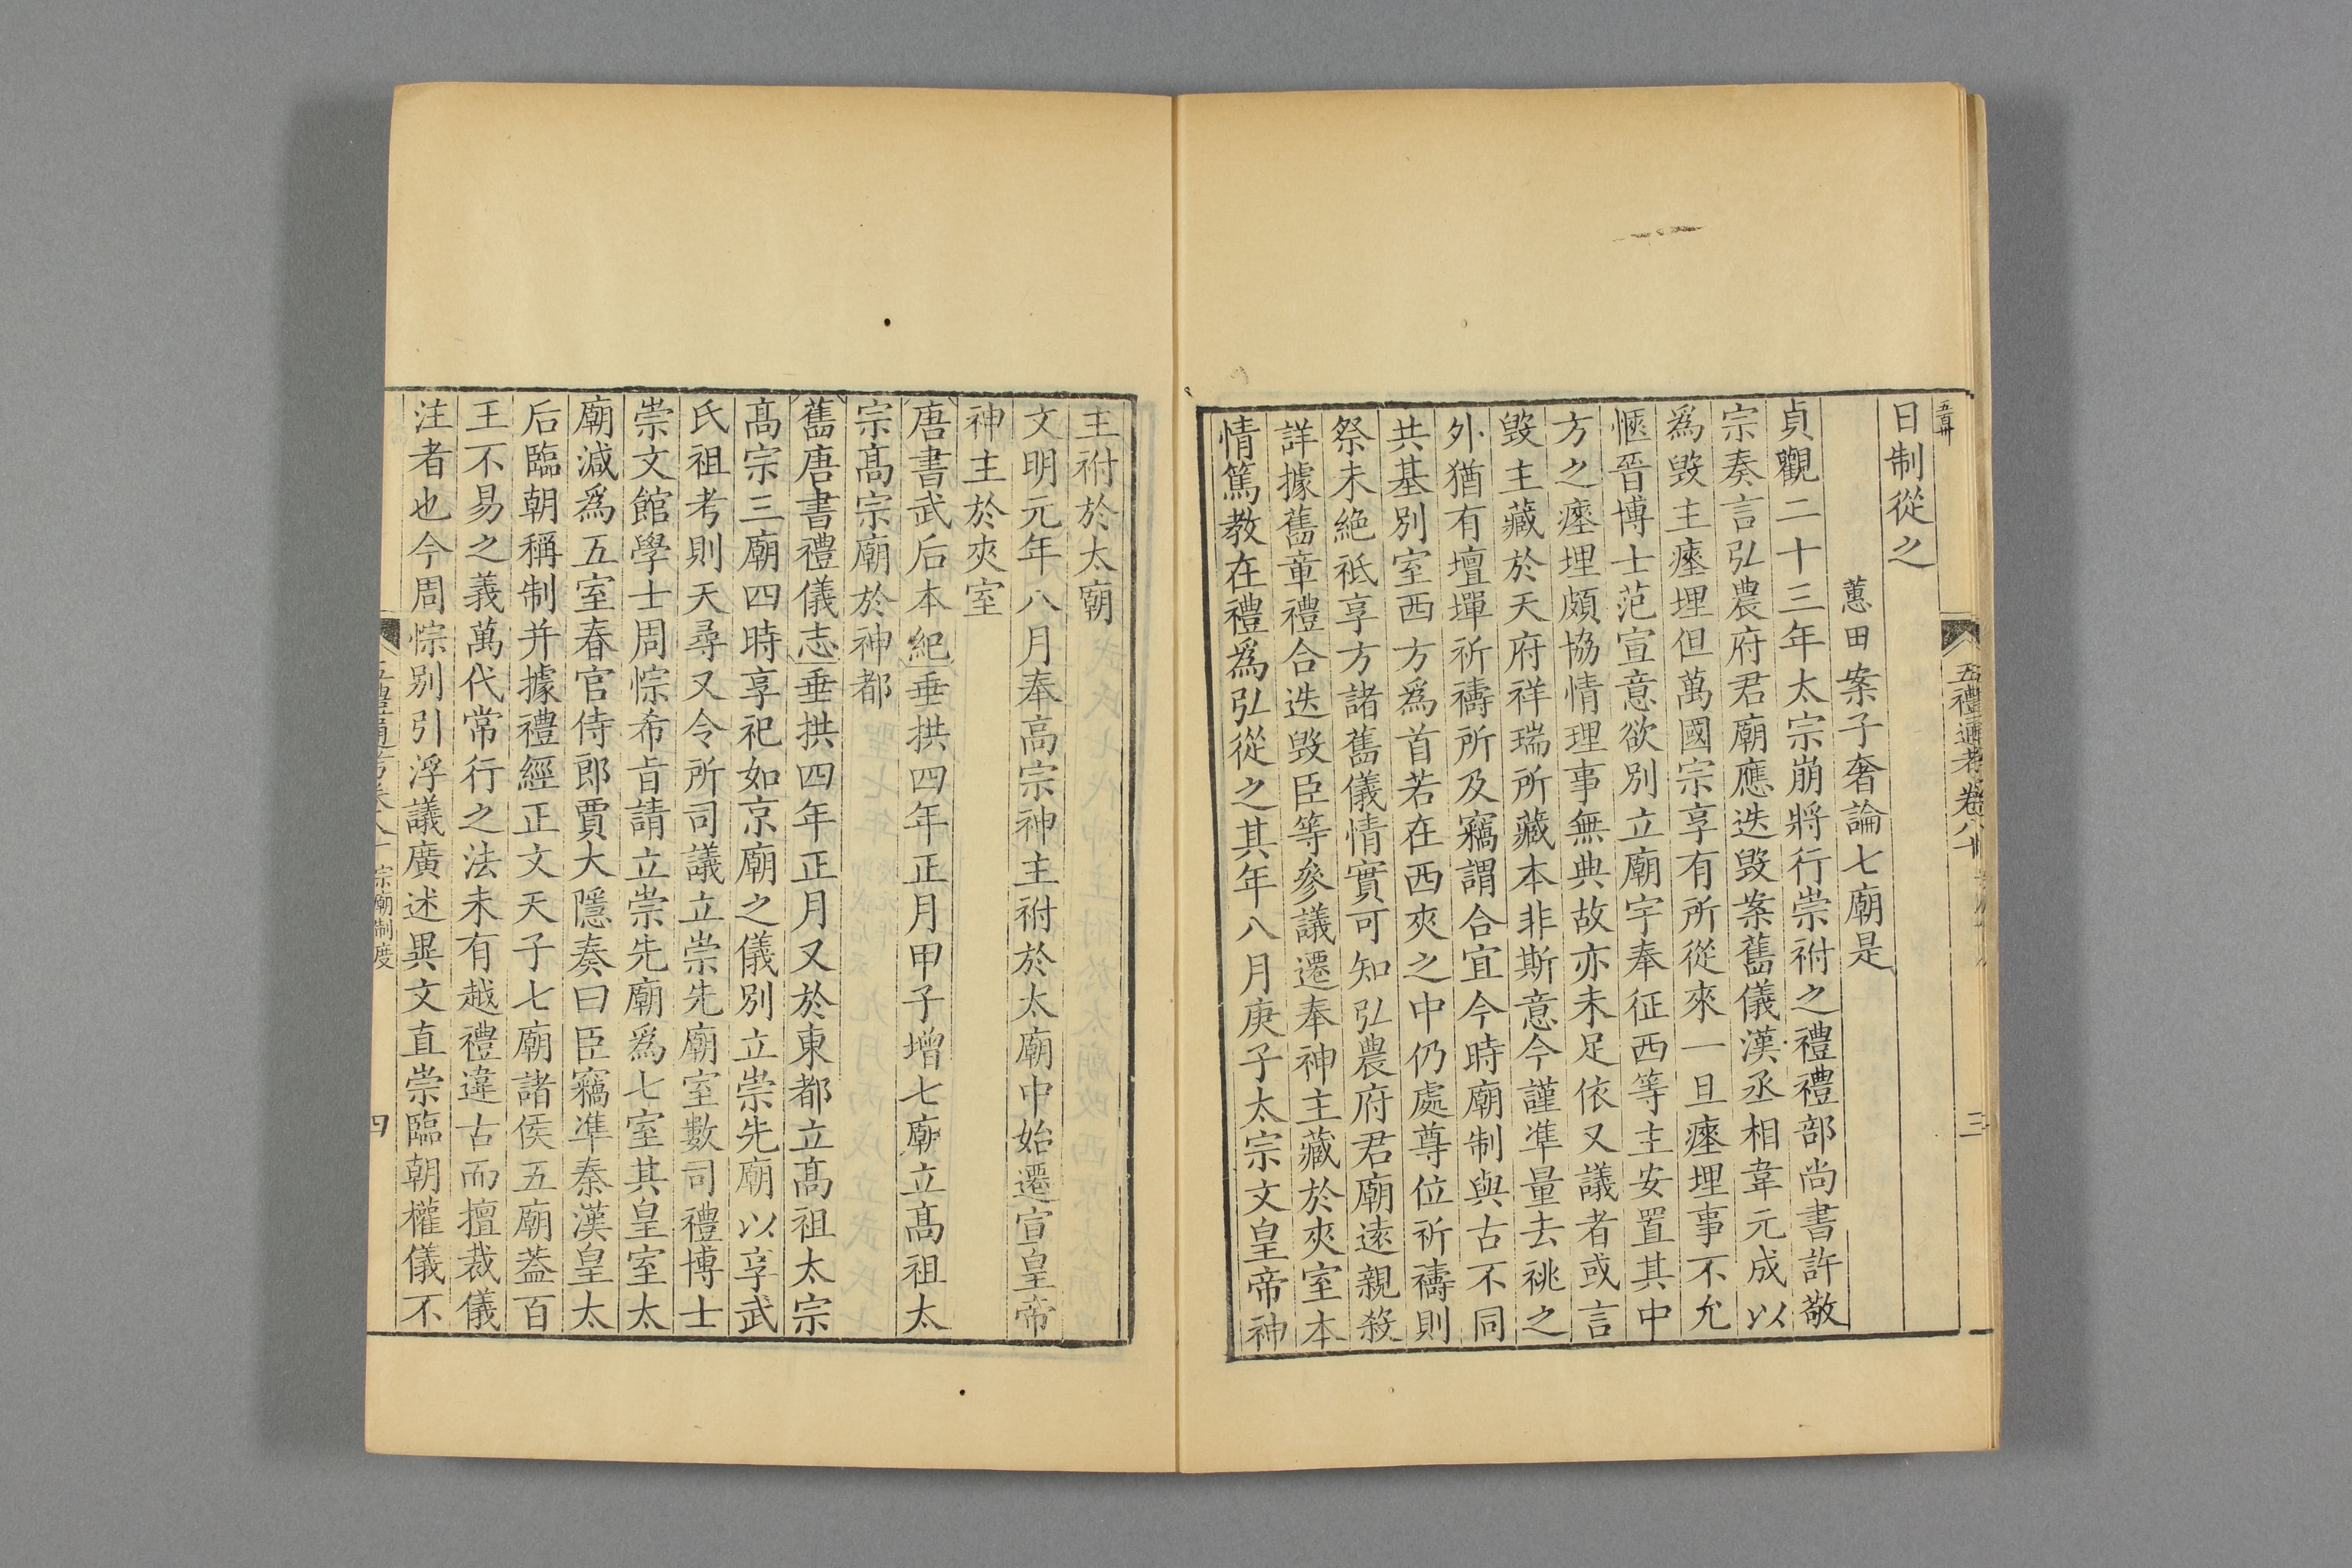 五禮通考卷八十
三
日制從之
蕙田案子奢論七廟是
貞觀二十三年太宗崩將行崇祔之禮禮部尚書許敬
宗奏言弘農府君廟應迭毀案舊儀漢丞相韋元成以
爲毀主瘞埋但萬國宗享有所從來一旦瘞埋事不允
愜晉博士范宣意欲別立廟宇奉征西等主安置其中
方之瘞埋頗協情理事無典故亦未足依又議者或言
毀主藏於天府祥瑞所藏本非斯意今謹準量去祧之
外猶有壇墠祈禱所及竊謂合宜今時廟制與古不同
共基別室西方爲首若在西夾之中仍處尊位祈禱則
祭未絶祇享方諸舊儀情實可知弘農府君廟遠親殺
詳據舊章禮合迭毀臣等參議遷奉神主藏於夾室本
情篤教在禮爲弘從之其年八月庚子太宗文皇帝神
主祔於太廟
文明元年八月奉高宗神主祔於太廟中始遷宣皇帝
神主於夾室
唐書武后本紀垂拱四年正月甲子增七廟立髙祖太
宗髙宗廟於神都
舊唐書禮儀志垂拱四年正月又於東都立髙祖太宗
髙宗三廟四時享祀如京廟之儀別立崇先廟以享武
氏祖考則天尋又令所司議立崇先廟室數司禮博士
崇文館學士周悰希旨請立崇先廟爲七室其皇室太
廟減爲五室春官侍郎賈大隱奏曰臣竊準秦漢皇太
后臨朝稱制并據禮經正文天子七廟諸侯五廟蓋百
王不易之義萬代常行之法未有越禮違古而擅裁儀
注者也今周悰别引浮議廣述異文直崇臨朝權儀不
宗廟制度
四